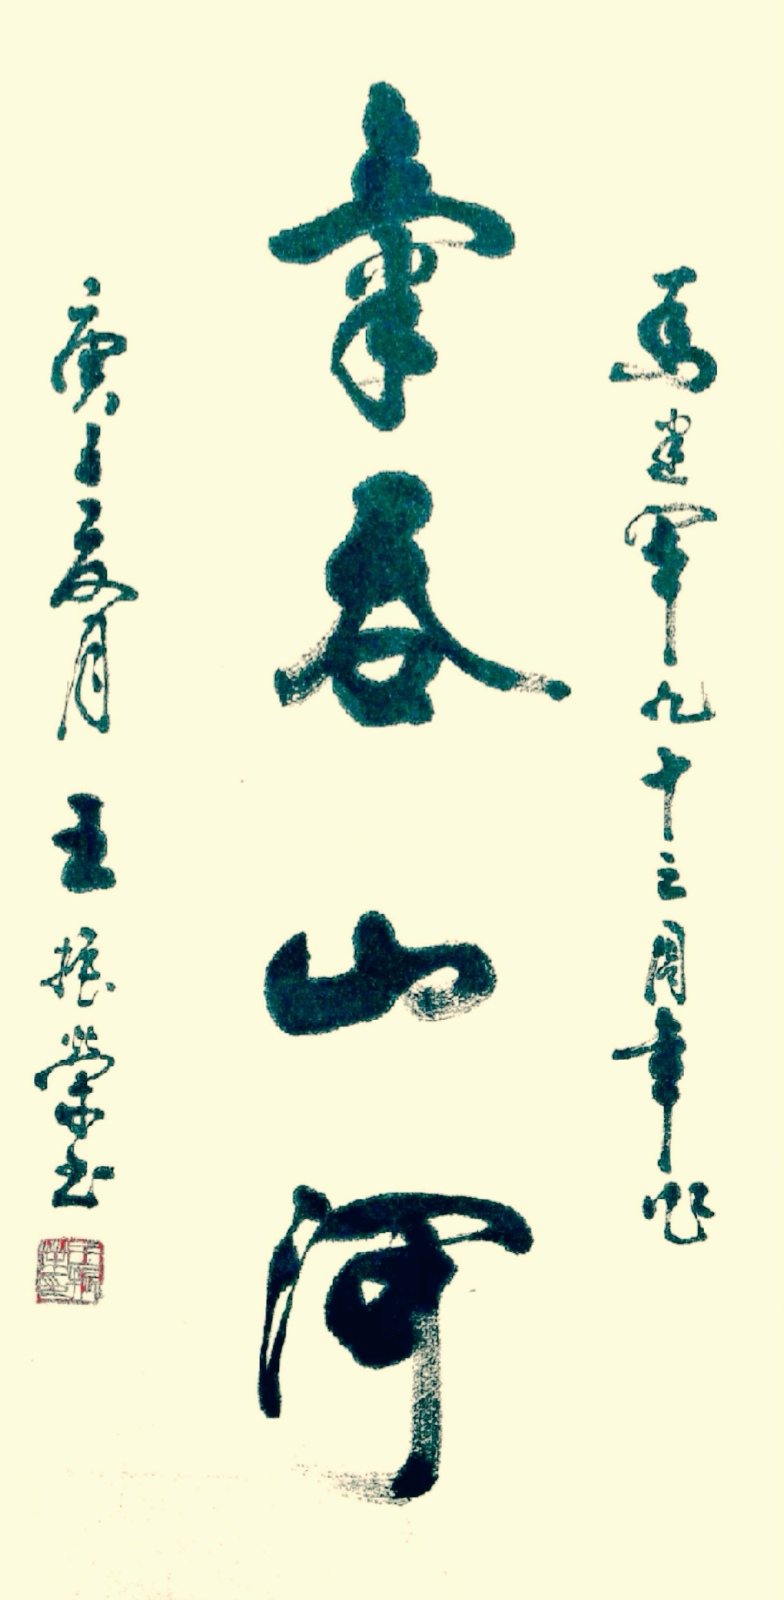 为建军九十三周年作
氣吞山河
庚子夏月 王振荣书